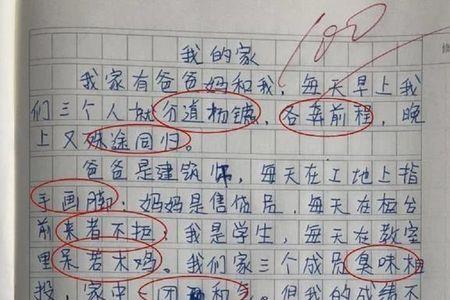 100
我的家
我家有爸爸妈和我，每天早上我
们三个人就分道扬镳，各奔前程，晚
上又殊途同归。
爸爸是建筑师，每天在工地上指
手画脚；妈妈是售货员，每天在柜台
前来者不拒；我是学生，每天在教室
里呆若木鸡。我们家三个成员臭味相
投，家中一团和气。但我的成绩不